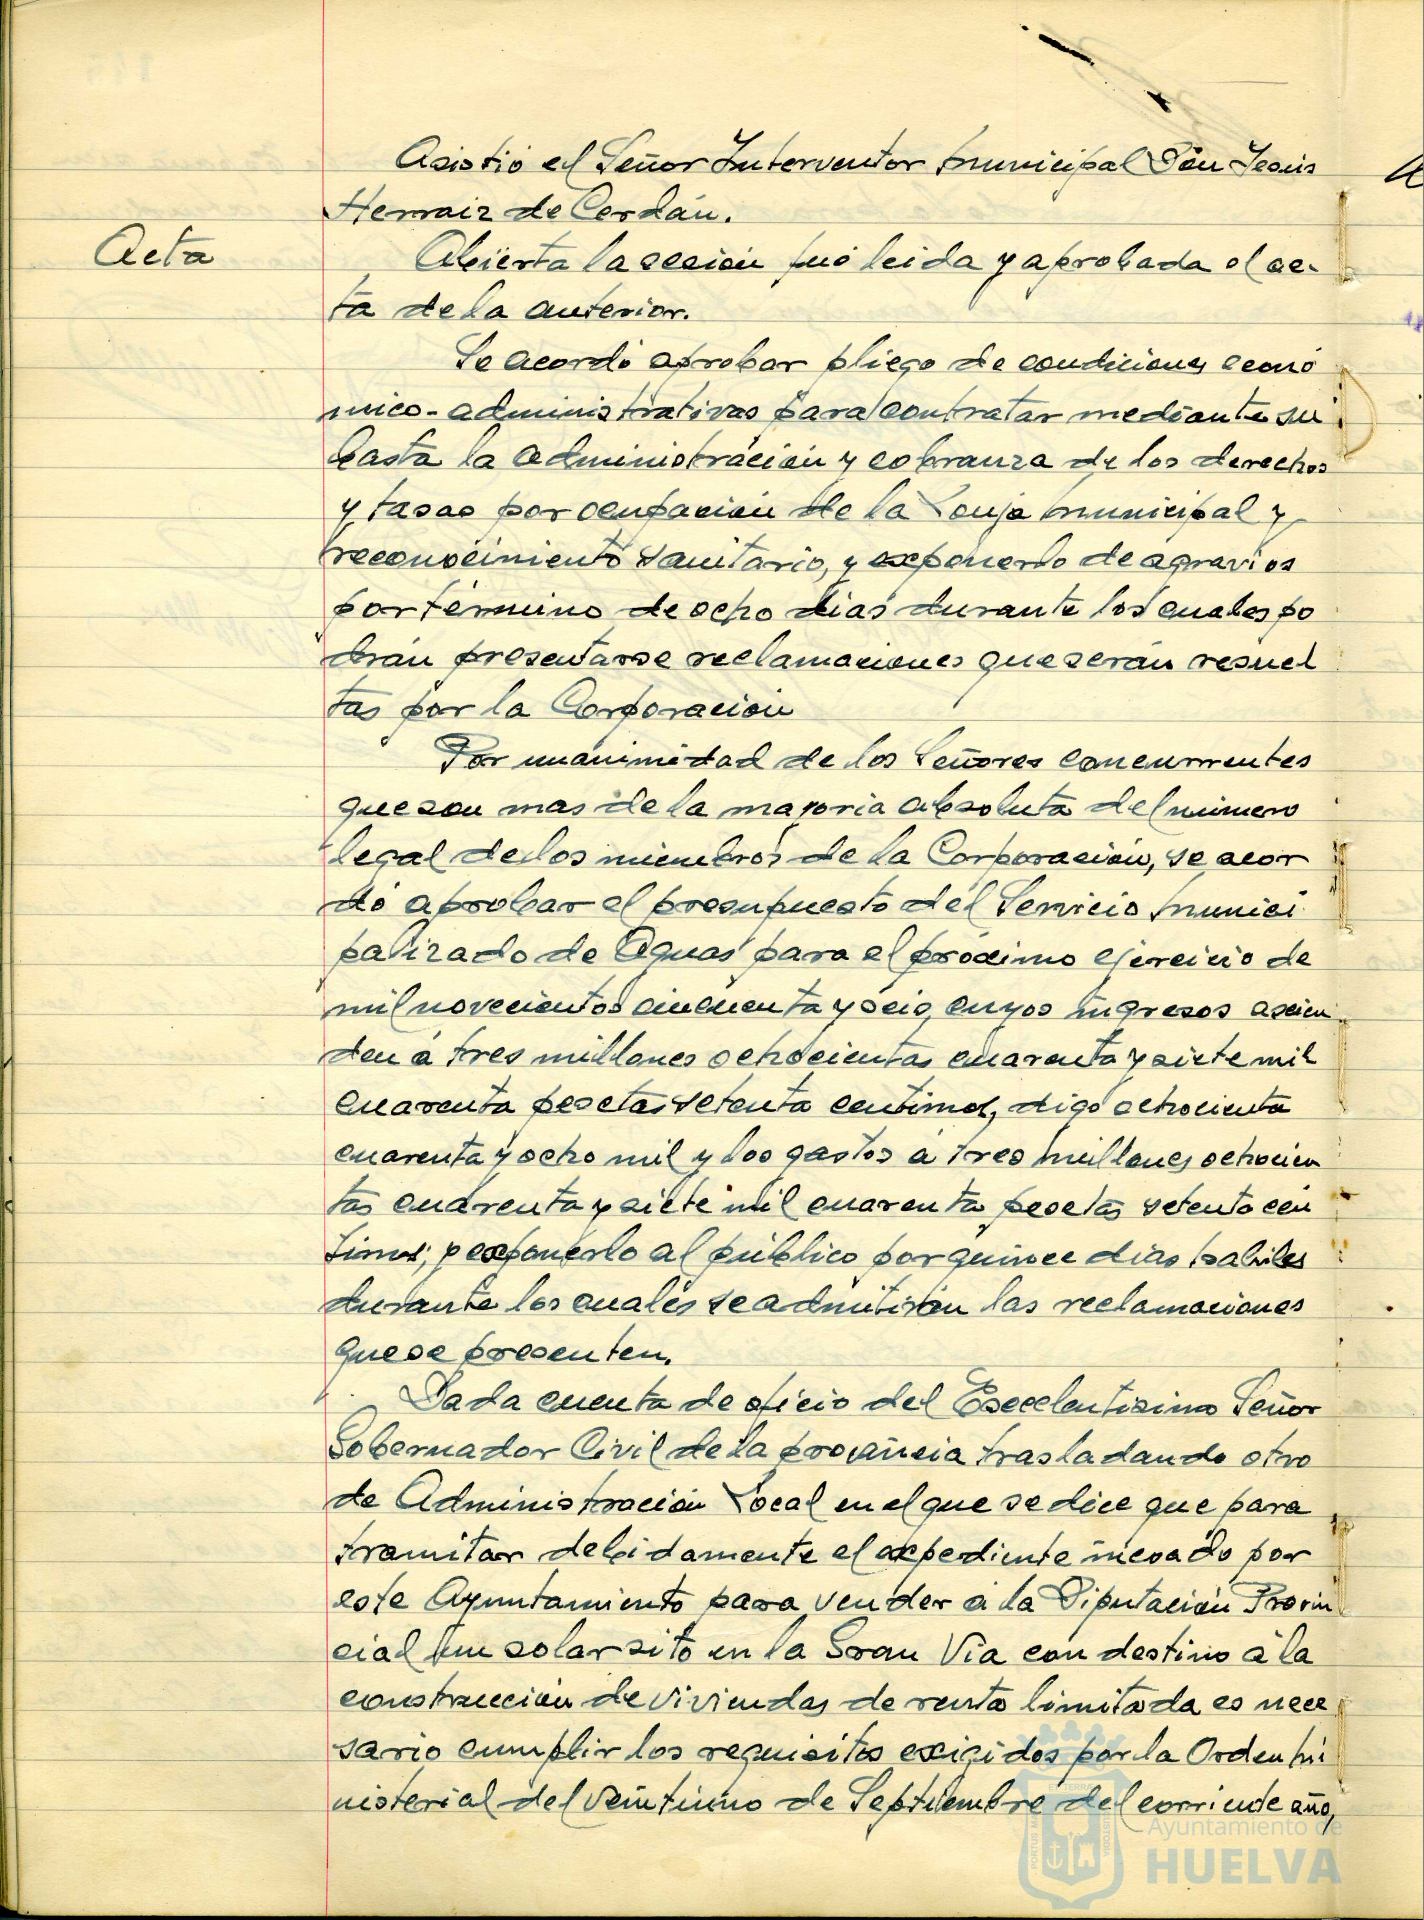 Asistió el Señor Interventor Municipal Don Jesús
Herraiz de Cerdán.
Acta
Abierta la sesión fué leida y aprobada el ac-
ta de la anterior.
Se acordó aprobar pliego de condiciones econó
mico-administrativas para contratar mediante su
basta la administración y cobranza de los derechos
y tasas por ocupación de la Lonja Municipal y
reconocimiento sanitario, y exponerlo de agravios
por término de ocho dias durante los cuales po
drán presentarse reclamaciones que serán resuel
tas por la Corporación
Por unanimidad de los Señores concurrentes
que son mas de la mayoria absoluta del número
legal de los miembros de la Corporación, se acor
dó aprobar el presupuesto del Servicio Munici
palizado de Aguas para el próximo ejercicio de
mil novecientos cincuenta y seis, cuyos ingresos ascien
den á tres millones ochocientas cuarenta y siete mil
cuarenta pesetas setenta centimos, digo ochocienta
cuarenta y ocho mil y los gastos á tres millones ochocien
tas cuarenta y siete mil cuarenta pesetas setenta cén
timos; y exponerlo al público por quince dias habiles
durante los cuales se admitirán las reclamaciones
que se presenten.
Dada cuenta de oficio del Excelentisimo Señor
Gobernador Civil de la provincia trasladando otro
de Administración Local en el que se dice que para
tramitar debidamente el expediente incoado por
este Ayuntamiento para vender á la Diputación Provin
cial un solar sito en la Gran Via con destino á la
construcción de viviendas de renta limitada es nece
sario cumplir los requisitos exigidos por la Orden Mi
nisterial del veintiuno de Septiembre del corriente año,
Ayuntamiento de
HUELVA